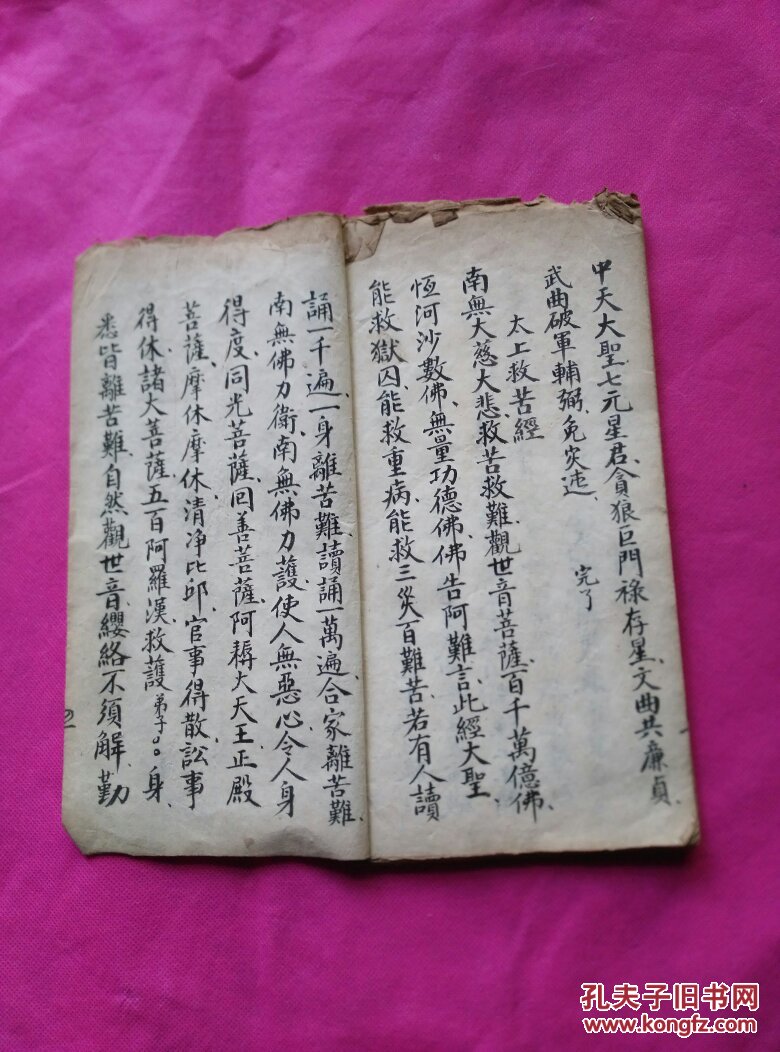 中天大聖七元星君、貪狼巨門祿存星、文曲共廉貞、
武曲破軍輔弼、免災迍、 完了
太上救苦經
南無大慈大悲救苦救難觀世音菩薩、百千萬億佛、
恆河沙數佛、無量功德佛、佛告阿難言、此經大聖、
能救獄囚、能救重病、能救三災百難苦、若有人讀
誦一千遍、一身離苦難、讀誦一萬遍、合家離苦難、
南無佛力衛、南無佛力護、使人無惡心、令人身
得度、同光菩薩、回善菩薩、阿耨大天王、正殿
菩薩、摩休摩休、清净比邱、官事得散、訟事
得休、諸大菩薩、五百阿羅漢、救護弟子〇〇身、
悉皆離苦難、自然觀世音、纓絡不須解、勤
孔夫子旧书网
www.kongfz.com